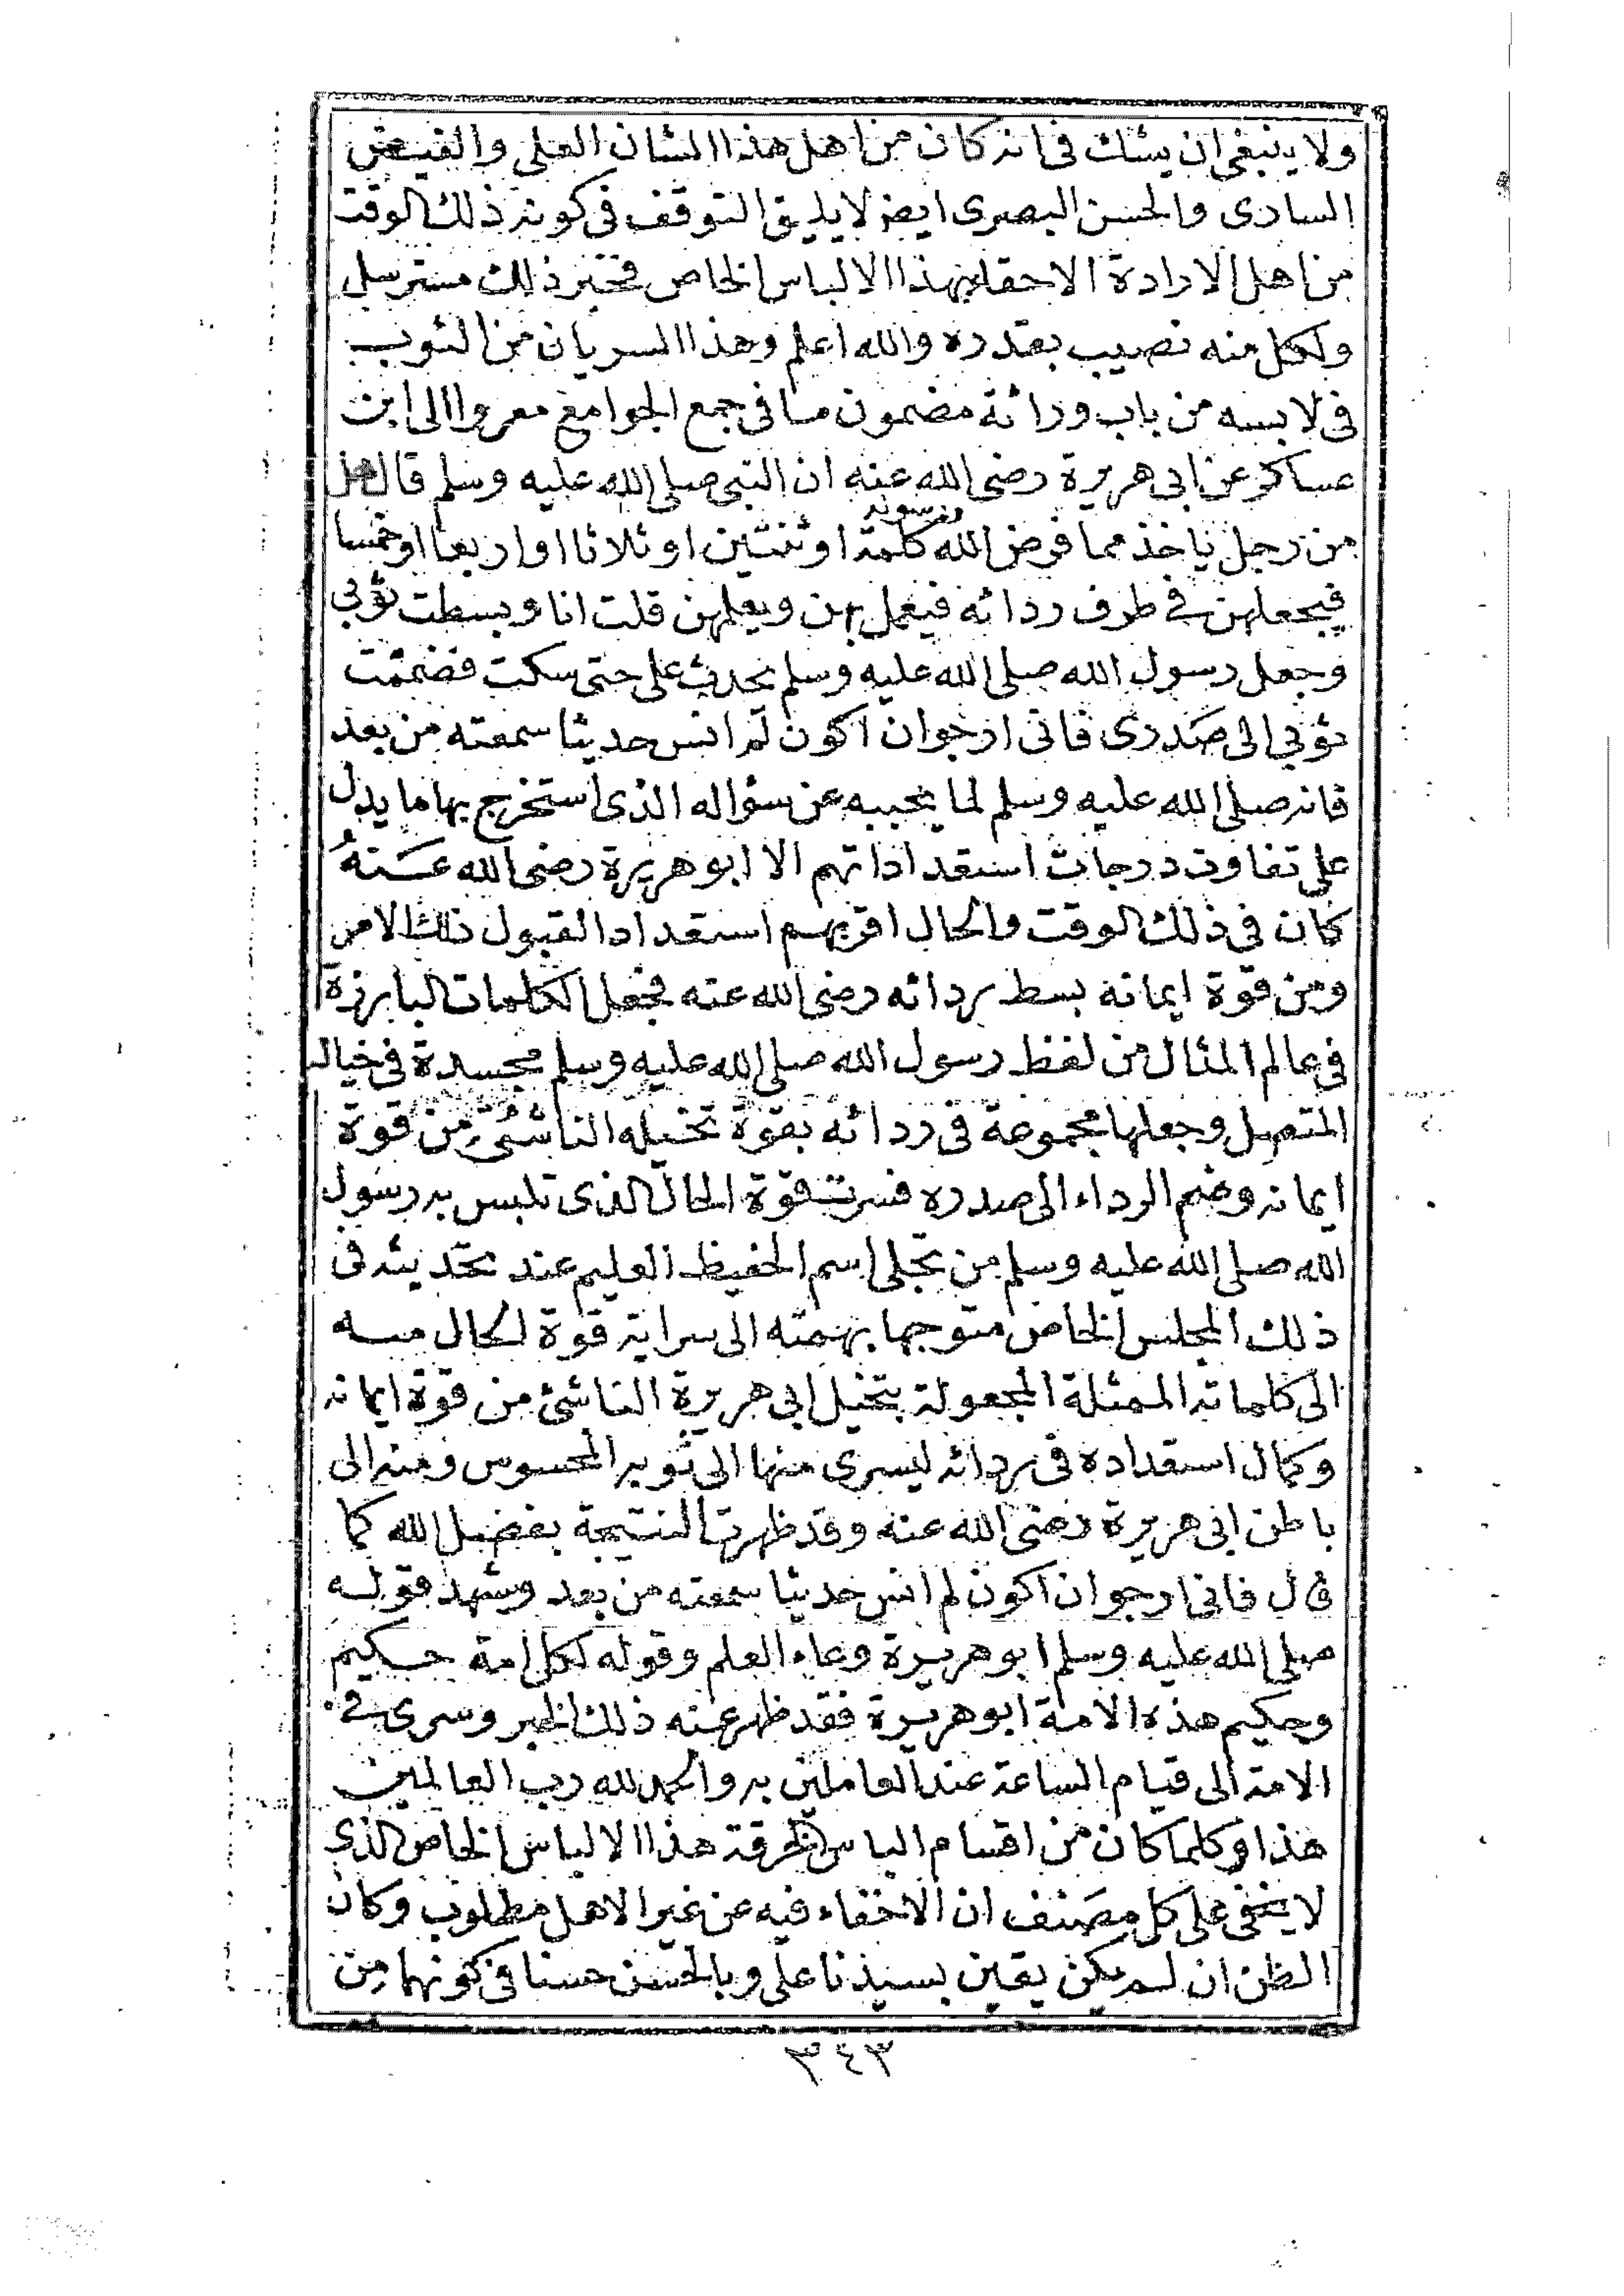 ولا ينبغى ان يشك فى انه كان من اهل هذا الشان العلى والفيض
السارى والحسن البصرى ايض لا يليق التوقف فى كونه ذلك الوقت
من اهل الارادة الاحقاء بهذا الالباس الخاص فخبر ذلك مسترسل
ولكل منه نصيب بقدره والله اعلم وهذا السريان من الثوب
فى لابسه من باب وراثة مضمون ما فى جمع الجوامع معزوا الى ابن
عساكر عن ابى هريرة رضى الله عنه ان النبى صلى الله عليه وسلم قال هل
من رجل ياخذ مما فرض الله ورسوله كلمة او ثنتين او ثلاثا او اربعا او خمسا
فيجعلهن فى طرف ردائه فيعمل بهن ويعلمهن قلت انا وبسطت ثوبى
وجعل رسول الله صلى الله عليه وسلم يحدث على حتى سكت فضممت
ثوبى الى صدرى فانى ارجوان اكون لم انس حديثا سمعته من بعد
فانه صلى الله عليه وسلم لما يجبه عن سؤاله الذى استخرج بها ما يدل
على تفاوت درجات استعداداتهم الا ابو هريرة رضى الله عنهُ
كان فى ذلك الوقت والحال اقربهم استعدادا لقبول ذلك الامر
ومن قوة ايمانه بسط ردائه رضى الله عنه فجعل الكلمات البارزة
فى عالم المثال من لفظ رسول الله صلى الله عليه وسلم مجسدة فى خياله
المتصل وجعلها مجموعة فى ردائه بقوة تخيله الناشئ من قوة
ايمانه وضم الرداء الى صدره فسرت قوة الحال الذى تلبس به رسول
الله صلى الله عليه وسلم من تجلى اسم الحفيظ العليم عند تحديثه فى
ذلك المجلس الخاص متوجها بهمته الى سراية قوة الحال منه
الى كلماته الممثلة المجعولة بتخيل ابى هريرة الناشئ من قوة ايمانه
وكمال استعداده فى ردائه ليسرى منها الى ثوبه المحسوس ومنه الى
باطن ابى هريرة رضى الله عنه وقد ظهرت النتيجة بفضل الله كما
قال فانى ارجوان اكون لم انس حديثا سمعته من بعد وشهد قوله
صلى الله عليه وسلم ابو هريرة وعاء العلم وقوله لكل امة حكيم
وحكيم هذه الامة ابو هريرة فقد ظهر عنه ذلك الخبر وسرى فى
الامة الى قيام الساعة عند العاملين به والحمد لله رب العالمين
هذا وكلما كان من اقسام الباس الخرقة هذا الالباس الخاص الذى
لا يخفى على كل مصنف ان الاخفاء فيه عن غير الاهل مطلوب وكان
الظن ان لم يكن يقين بسيدنا على وبالحسن حسنا فى كونهما من
٣٤٣